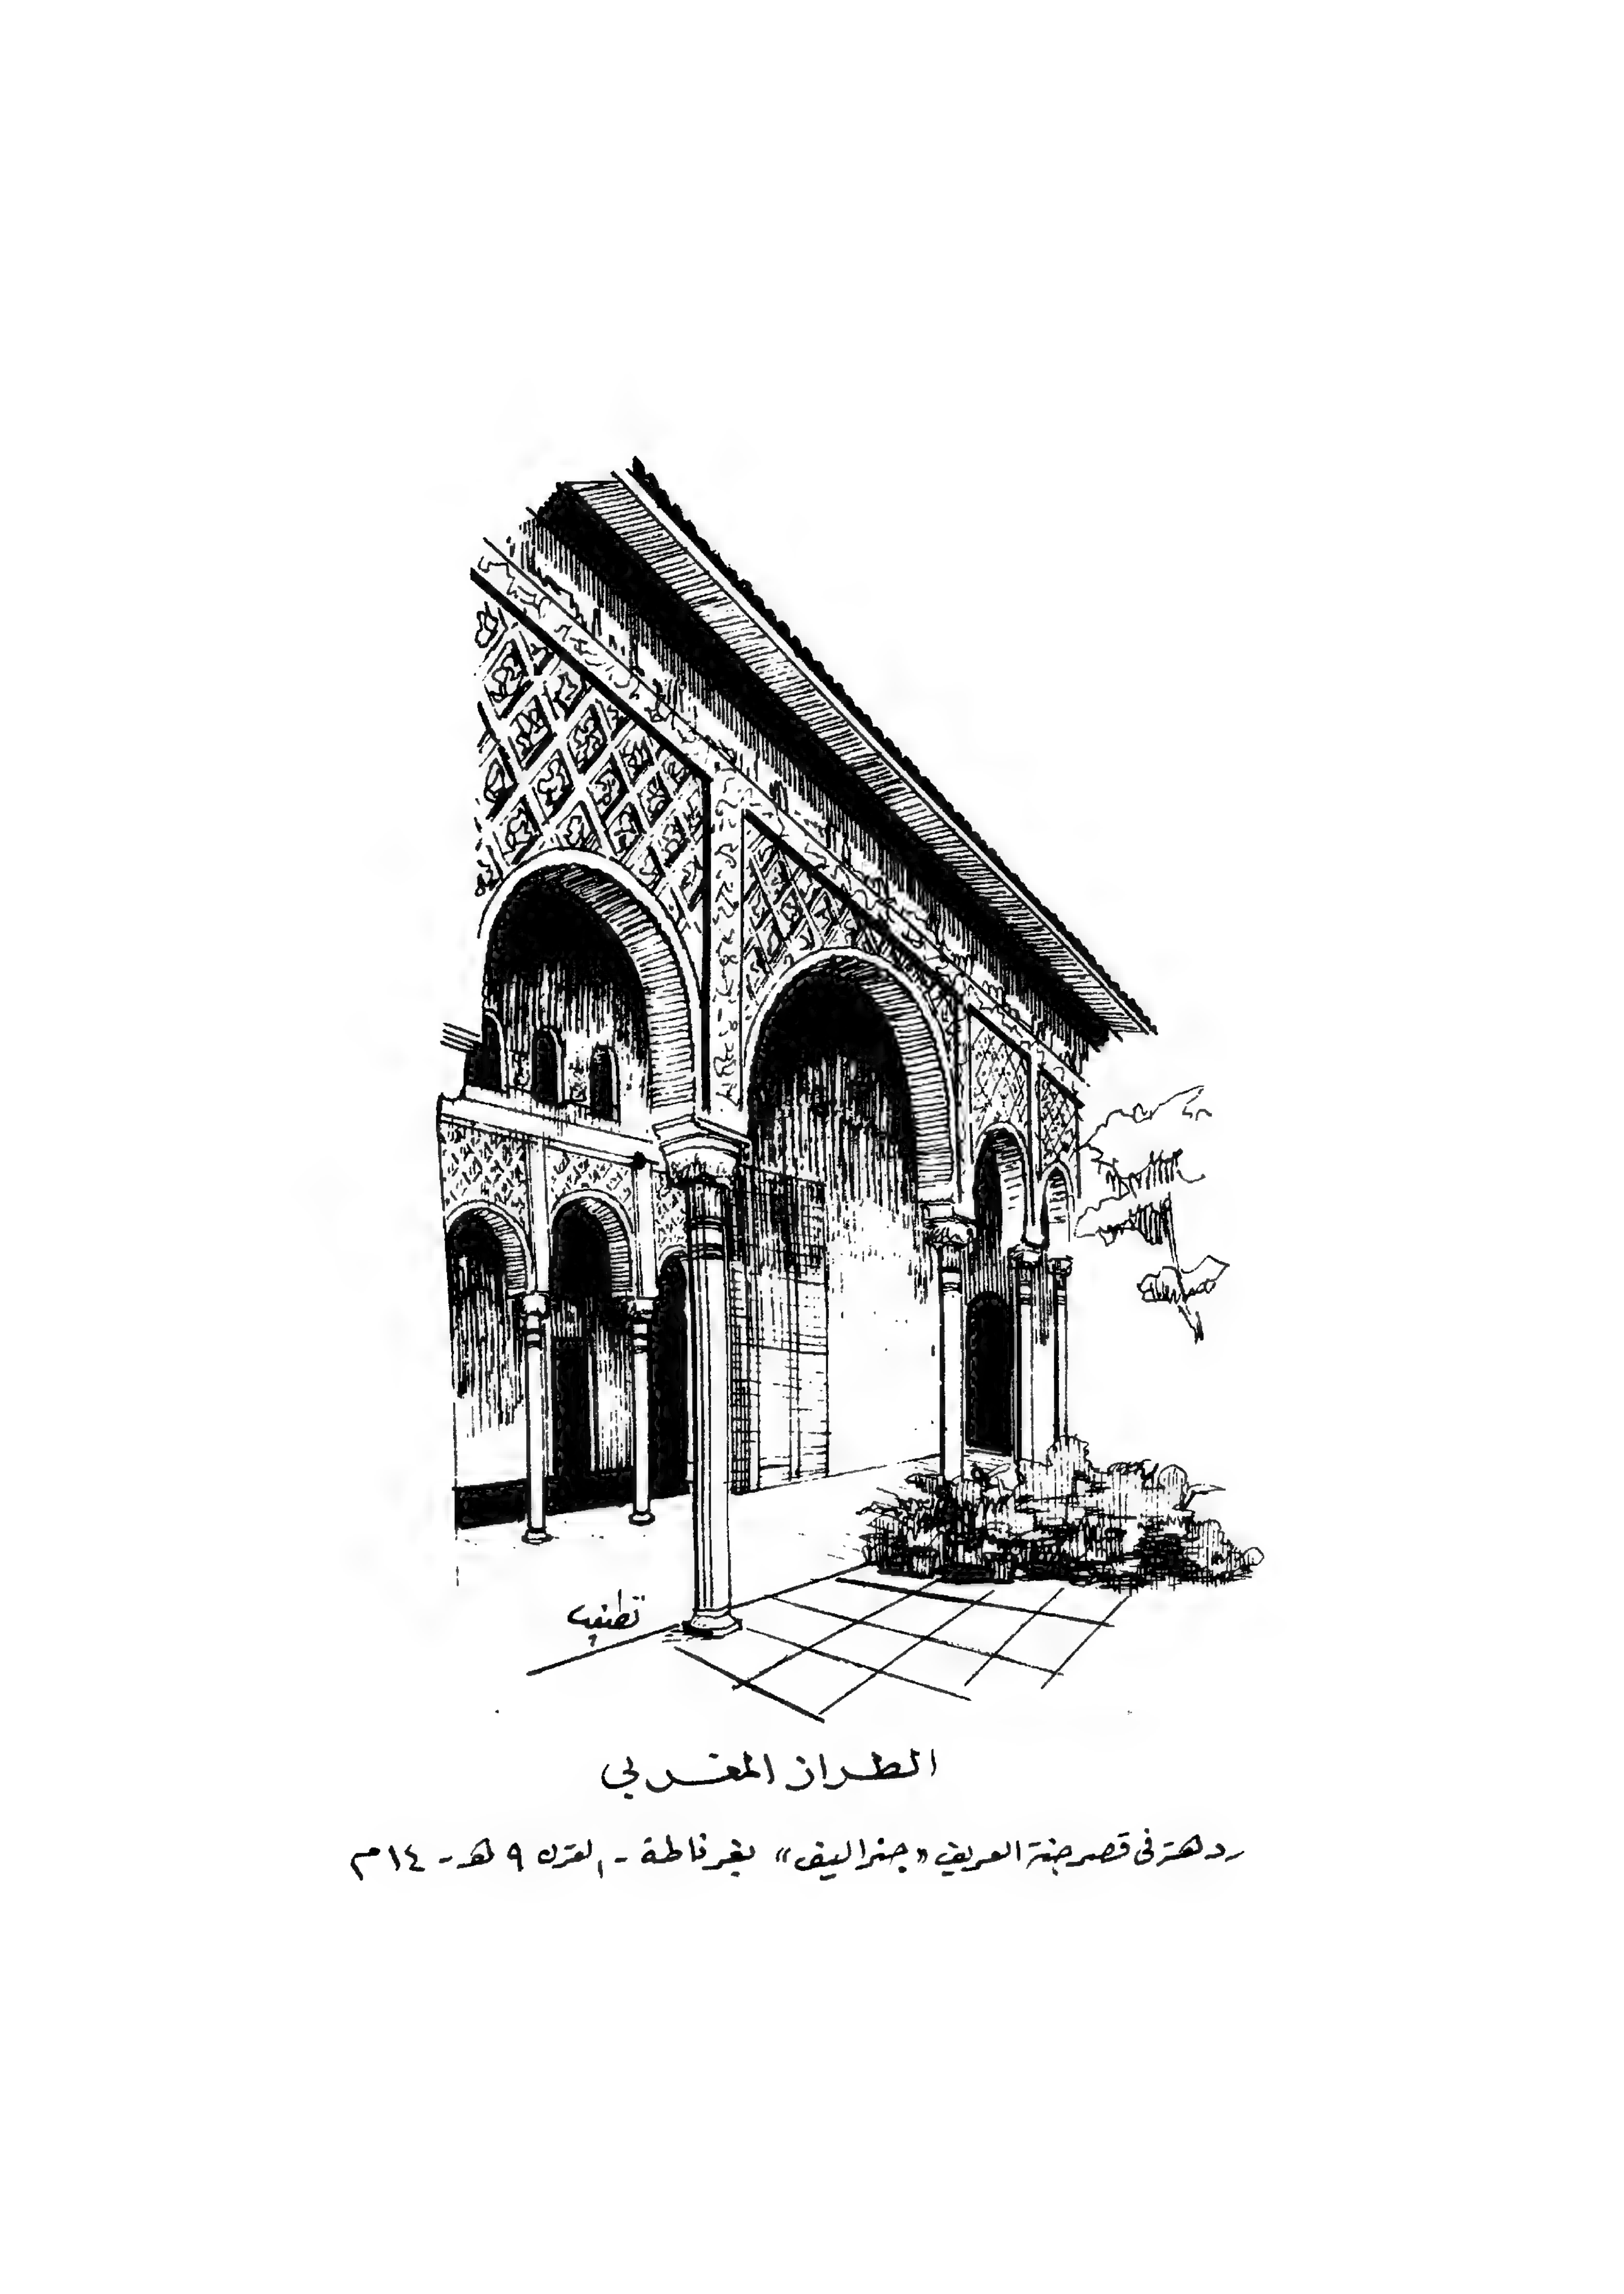 الطراز المغربي
ردهة في قصر جنة العريف «جنراليف» بغرناطة - القرن ٩ هـ - ١٤ م